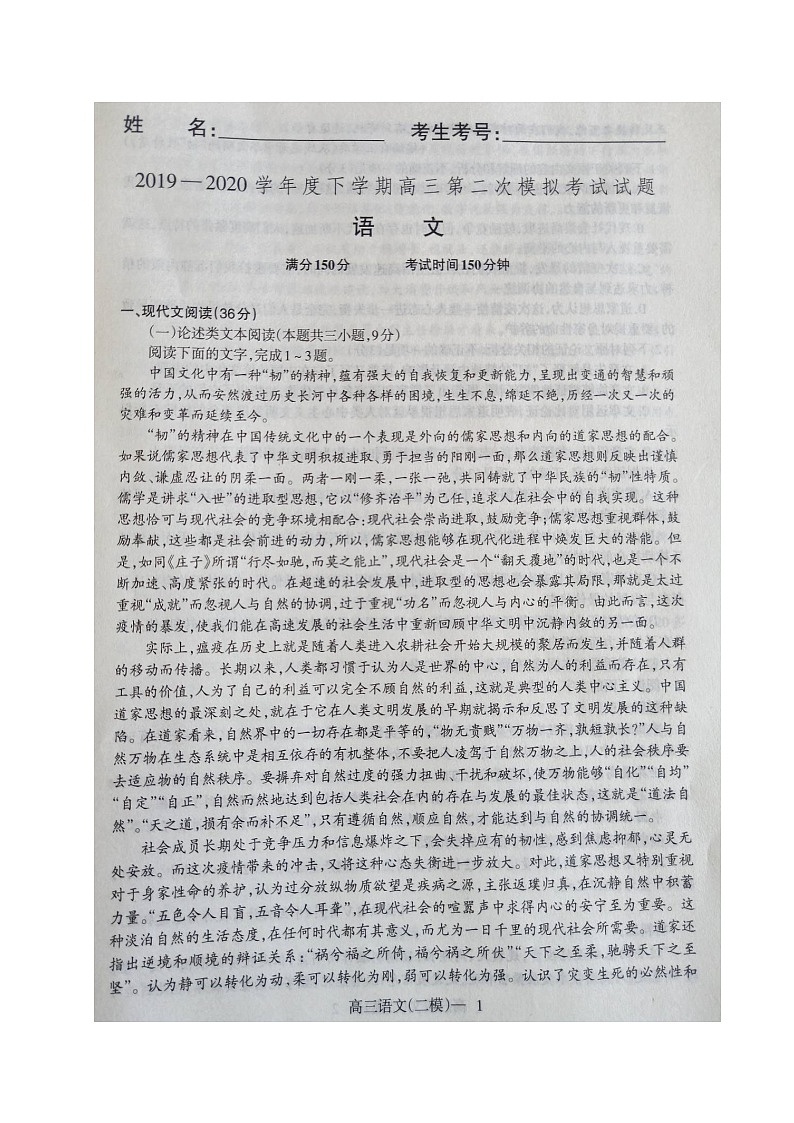 姓 名: 考生考号:
2019—2020学年度下学期高三第二次模拟考试试题
语 文
满分150分 考试时间150分钟
一、现代文阅读(36分)
(一)论述类文本阅读(本题共三小题,9分)
阅读下面的文字,完成1~3题。
中国文化中有一种“韧”的精神,蕴有强大的自我恢复和更新能力,呈现出变通的智慧和顽
强的活力,从而安然渡过历史长河中各种各样的困境,生生不息,绵延不绝,历经一次又一次的
灾难和变革而延续至今。
“韧”的精神在中国传统文化中的一个表现是外向的儒家思想和内向的道家思想的配合。
如果说儒家思想代表了中华文明积极进取、勇于担当的阳刚一面,那么道家思想则反映出谨慎
内敛、谦虚忍让的阴柔一面。两者一刚一柔,一张一弛,共同铸就了中华民族的“韧”性特质。
儒学是讲求“入世”的进取型思想,它以“修齐治平”为己任,追求人在社会中的自我实现。这种
思想恰可与现代社会的竞争环境相配合:现代社会崇尚进取,鼓励竞争;儒家思想重视群体,鼓
励奉献,这些都是社会前进的动力,所以,儒家思想能够在现代化进程中焕发巨大的潜能。但
是,如同《庄子》所谓“行尽如驰,而莫之能止”,现代社会是一个“翻天覆地”的时代,也是一个不
断加速、高度紧张的时代。在超速的社会发展中,进取型的思想也会暴露其局限,那就是太过
重视“成就”而忽视人与自然的协调,过于重视“功名”而忽视人与内心的平衡。由此而言,这次
疫情的暴发,使我们能在高速发展的社会生活中重新回顾中华文明中沉静内敛的另一面。
实际上,瘟疫在历史上就是随着人类进入农耕社会开始大规模的聚居而发生,并随着人群
的移动而传播。长期以来,人类都习惯于认为人是世界的中心,自然为人的利益而存在,只有
工具的价值,人为了自己的利益可以完全不顾自然的利益,这就是典型的人类中心主义。中国
道家思想的最深刻之处,就在于它在人类文明发展的早期就揭示和反思了文明发展的这种缺
陷。在道家看来,自然界中的一切存在都是平等的,“物无贵贱”“万物一齐,孰短孰长?”人与自
然万物在生态系统中是相互依存的有机整体,不要把人凌驾于自然万物之上,人的社会秩序要
去适应物的自然秩序。要摒弃对自然过度的强力扭曲、干扰和破坏,使万物能够“自化”“自均”
“自定”“自正”,自然而然地达到包括人类社会在内的存在与发展的最佳状态,这就是“道法自
然”。“天之道,损有余而补不足”,只有遵循自然,顺应自然,才能达到与自然的协调统一。
社会成员长期处于竞争压力和信息爆炸之下,会失掉应有的韧性,感到焦虑抑郁,心灵无
处安放。而这次疫情带来的冲击,又将这种心态失衡进一步放大。对此,道家思想又特别重视
对于身家性命的养护,认为过分放纵物质欲望是疾病之源,主张返璞归真,在沉静自然中积蓄
力量。“五色令人目盲,五音令人耳聋”,在现代社会的喧嚣声中求得内心的安宁至为重要。这
种淡泊自然的生活态度,在任何时代都有其意义,而尤为一日千里的现代社会所需要。道家还
指出逆境和顺境的辩证关系:“祸兮福之所倚,福兮祸之所伏”“天下之至柔,驰骋天下之至
坚”。认为静可以转化为动,柔可以转化为刚,弱可以转化为强。认识了灾变生死的必然性和
高三语文(二模)— 1